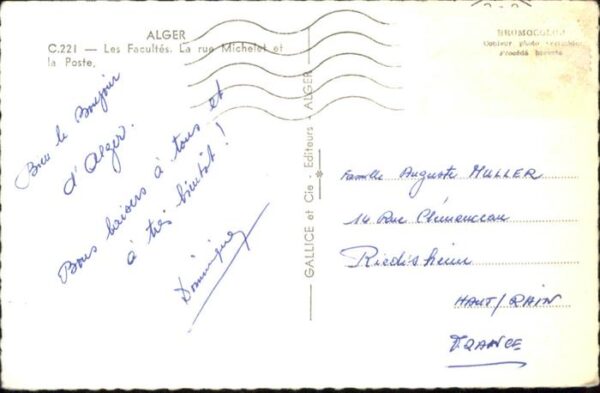 ALGER
C.221 — Les Facultés. La rue Michelet et
la Poste.
Bien le Bonjour
d'Alger.
Bons baisers à tous et
à très bientôt !
Dominique
GALLICE et Cie - Editeurs - ALGER
BROMOCOLOR
Couleur photo véritable
Procédé breveté
Famille Auguste MULLER
14 Rue Clémenceau
Riedisheim
HAUT/RAIN
FRANCE